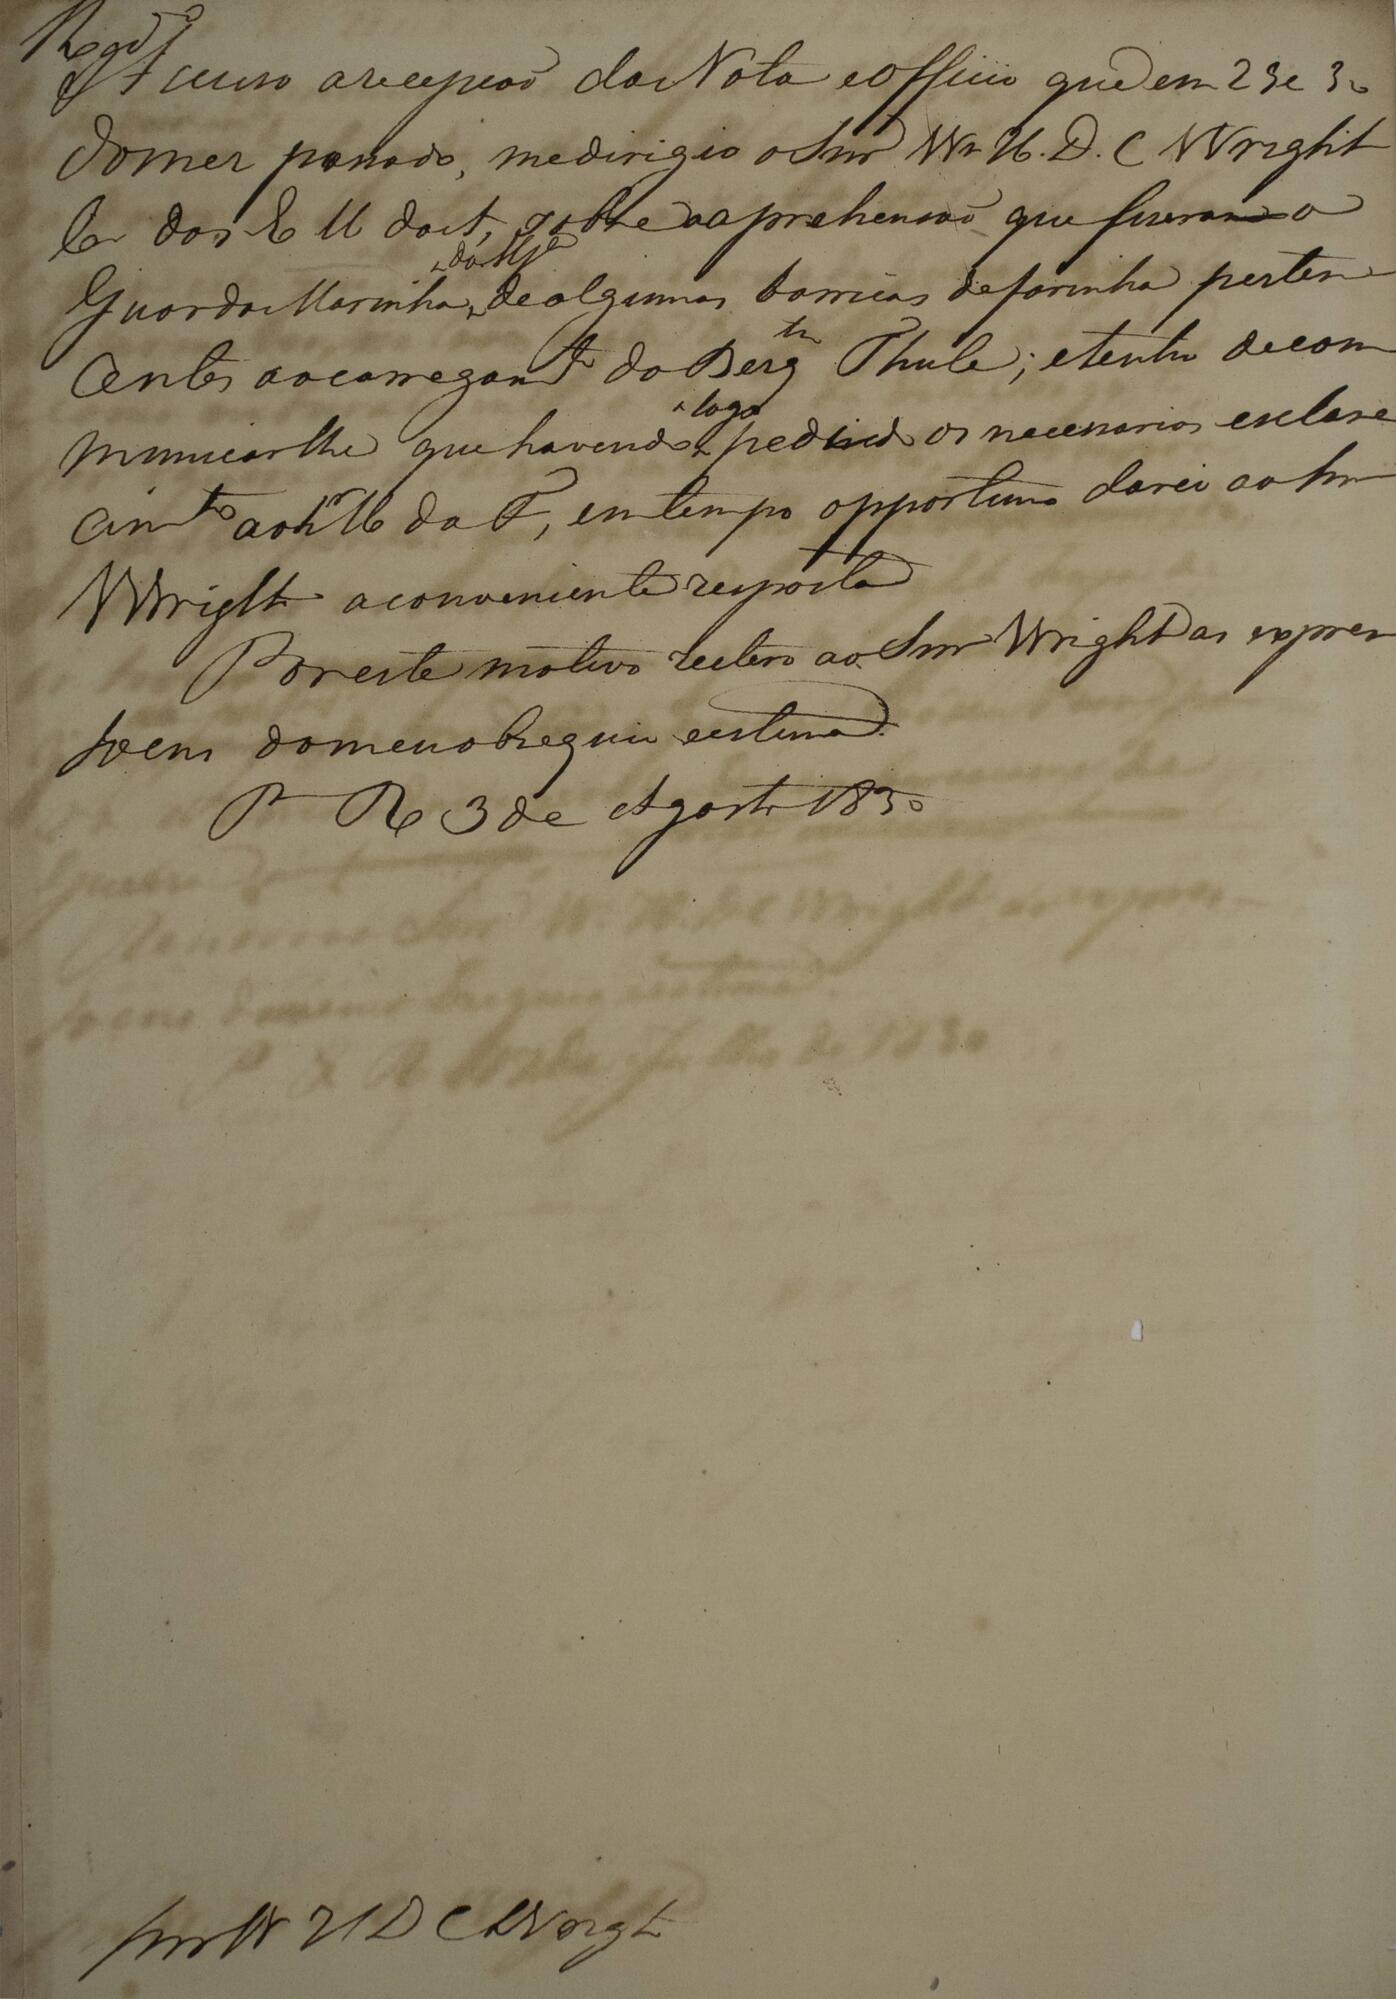 Reg.do
Accuso a recepção da Nota e officio que em 23 e 30
do mez passado, me dirigio o Snr Wm H. D. C Wright
C. dos E U da A, sobre a aprehensão que fizera o
Guarda Marinha, da Alfa de algumas barricas de farinha perten
centes ao carregamto do Bergtm Thule; e tenho de com
municar lhe que havendo logo pedido os necessarios esclare
cimtos ao Sr M da F, em tempo opportuno darei ao Snr
Wright a conveniente resposta
Por este motivo reitero ao Snr Wright as expres
soens do meu obsequio e estima.
P R 3 de Agosto 1830
Snr W H D C Wright